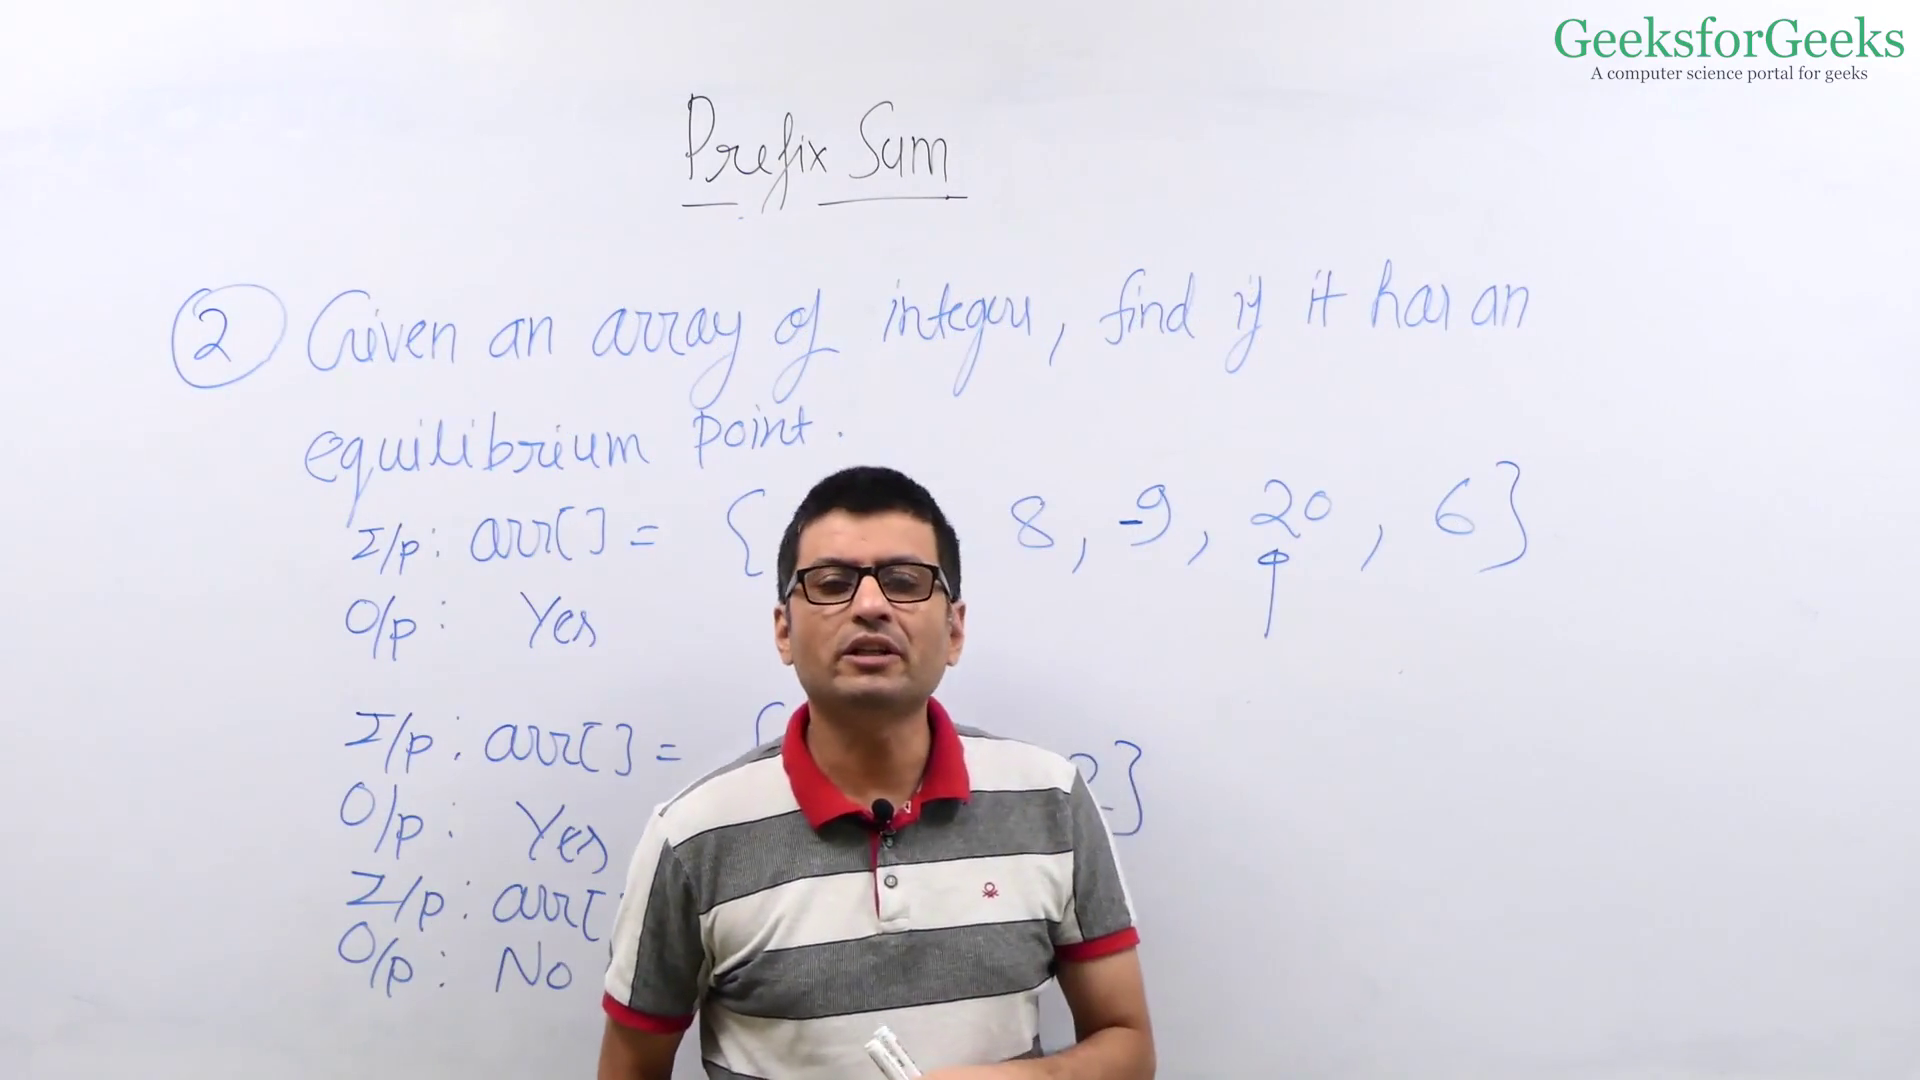 GeeksforGeeks
A computer science portal for geeks
Prefix Sum
2 Given an array of integers, find if it has an
equilibrium point.
I/p: arr[] = { 8, -9, 20, 6}
O/p: Yes
I/p: arr[] = { 2}
O/p: Yes
I/p: arr[
O/p: No